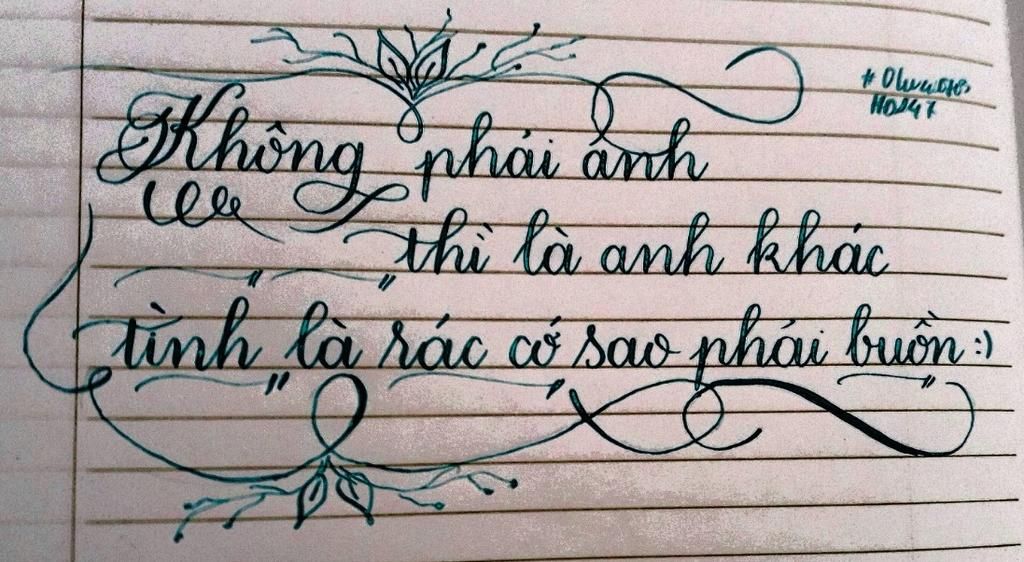 Không phải anh
thì là anh khác
tình là rác cớ sao phải buồn :)